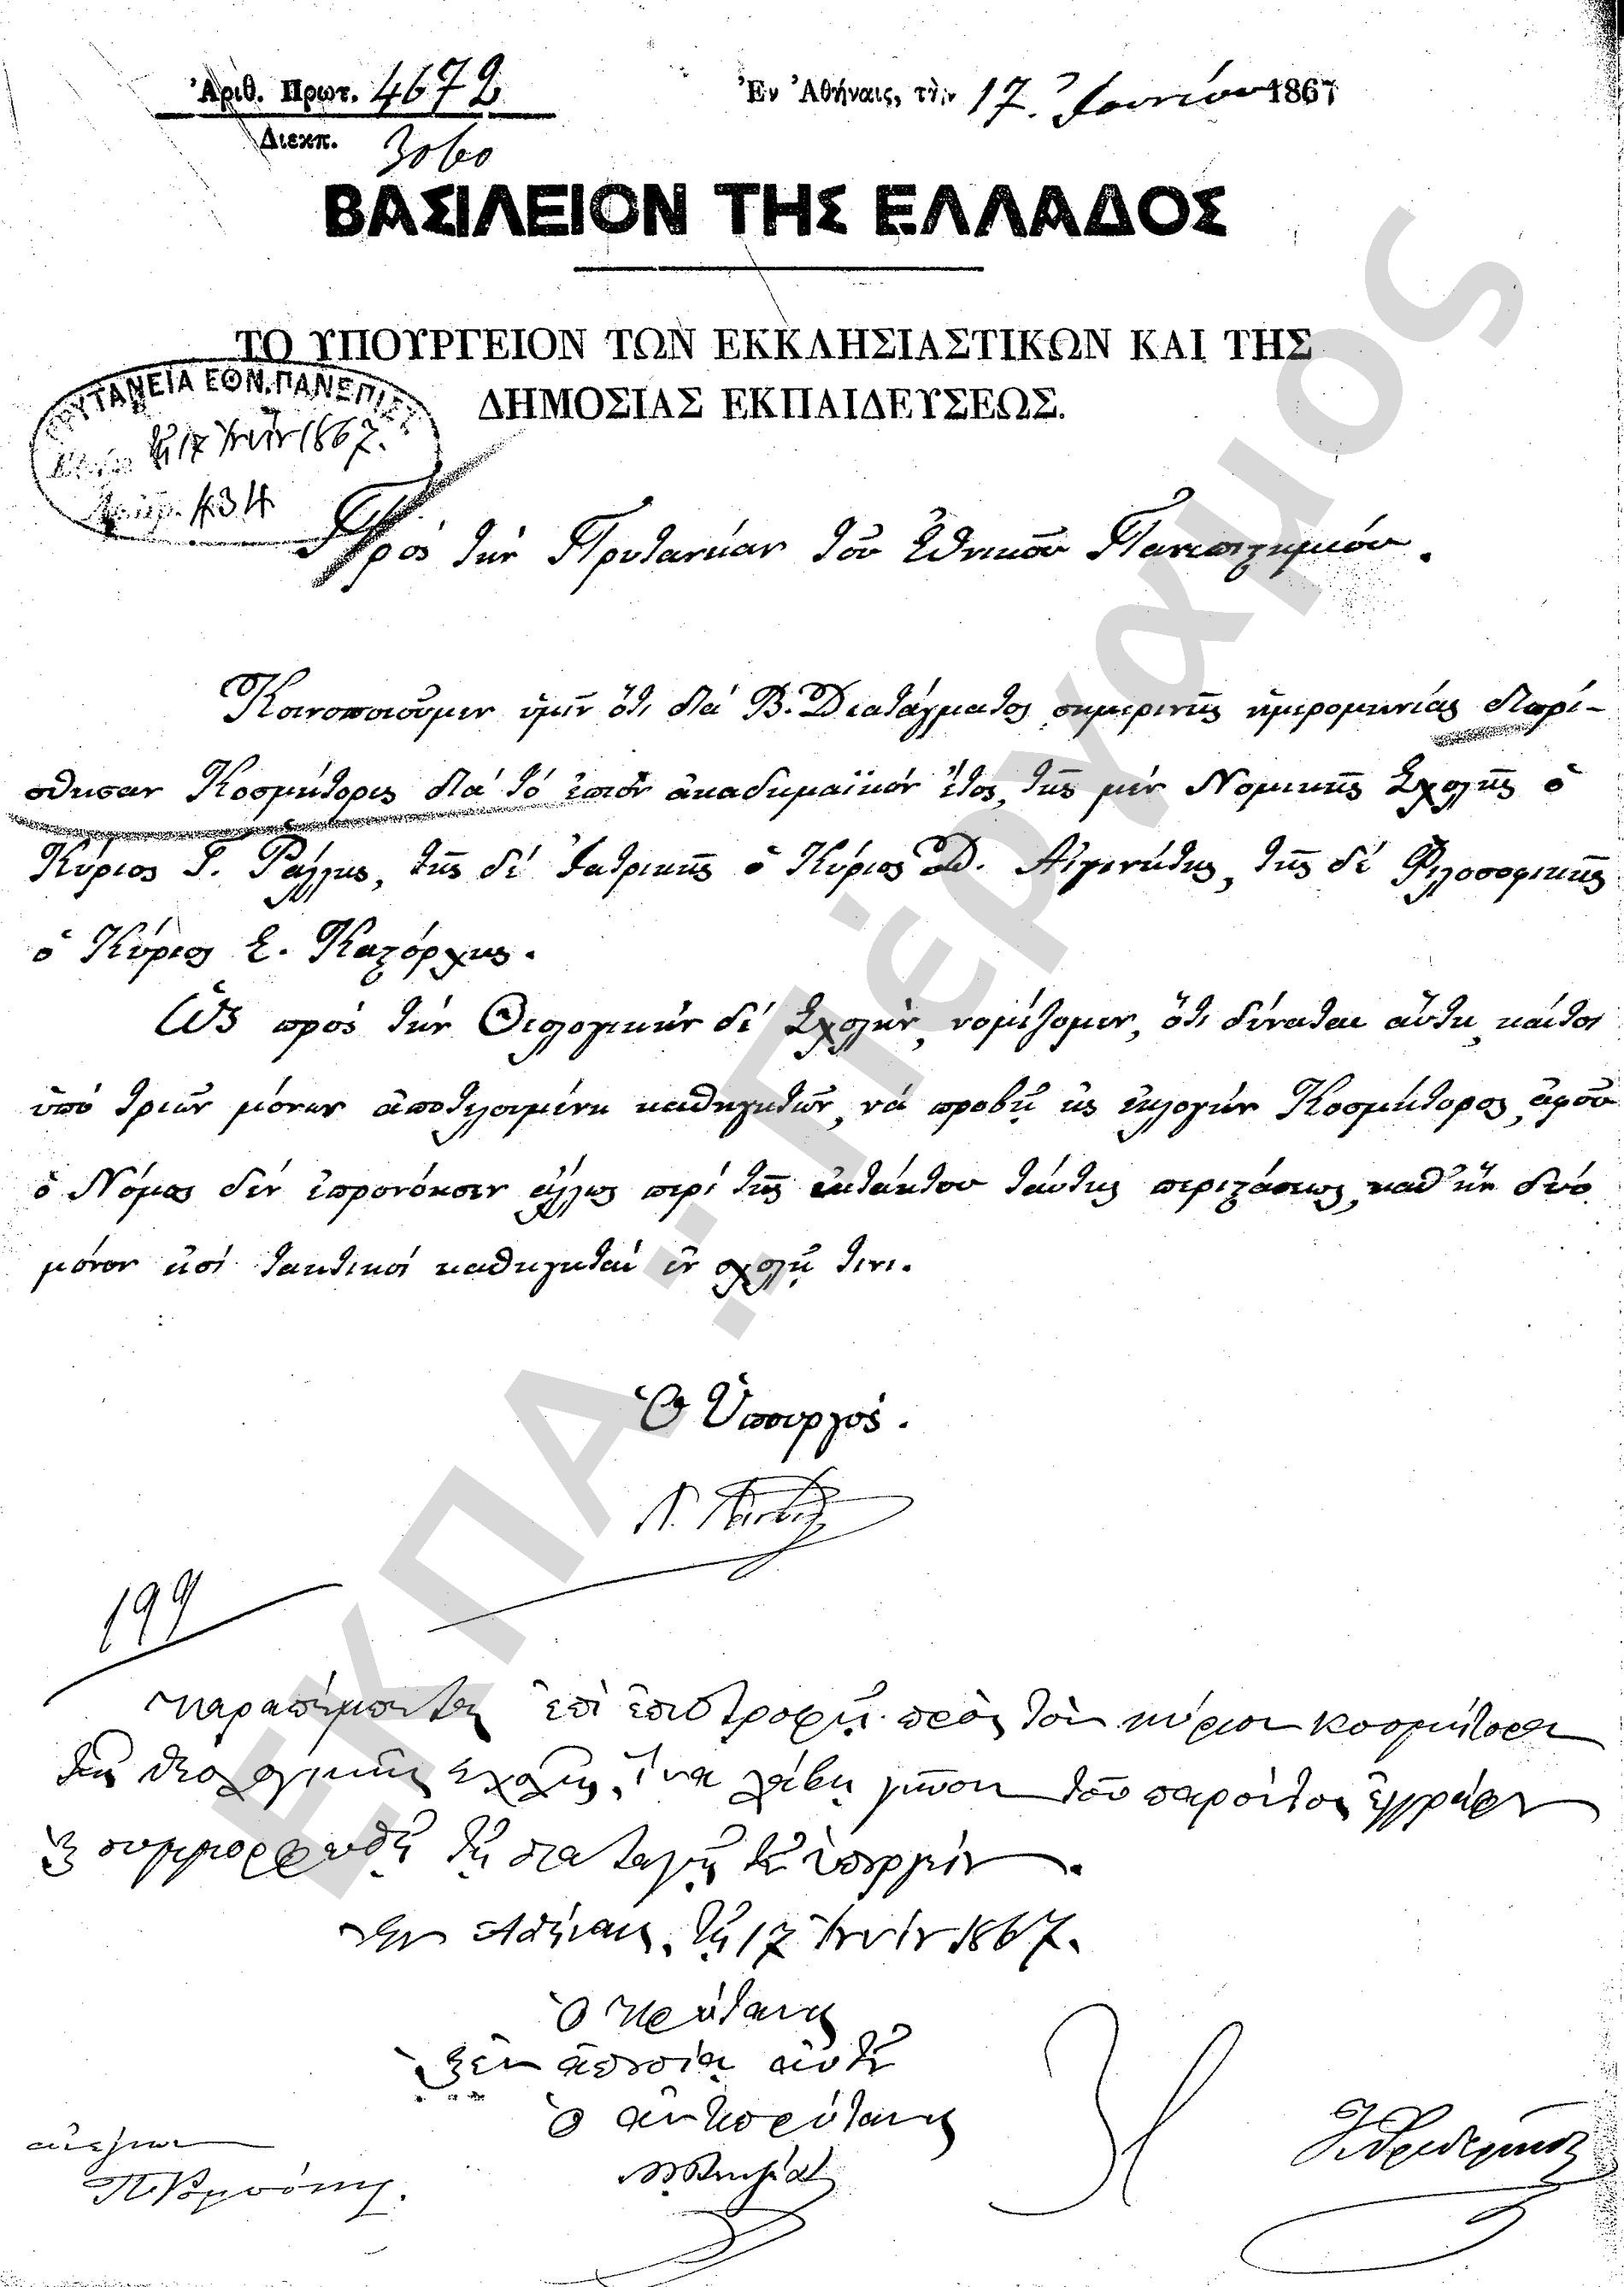 Ἀριθ. Πρωτ. 4672
Διεκπ. 3060
Ἐν Ἀθήναις, τὴν 17 Ἰουνίου 1867
ΒΑΣΙΛΕΙΟΝ ΤΗΣ ΕΛΛΑΔΟΣ
ΤΟ ΥΠΟΥΡΓΕΙΟΝ ΤΩΝ ΕΚΚΛΗΣΙΑΣΤΙΚΩΝ ΚΑΙ ΤΗΣ
ΔΗΜΟΣΙΑΣ ΕΚΠΑΙΔΕΥΣΕΩΣ.
ΠΡΥΤΑΝΕΙΑ ΕΘΝ. ΠΑΝΕΠΙΣΤ
τῇ 17 Ἰουνίου 1867.
434
Πρὸς τὴν Πρυτανείαν τοῦ Ἐθνικοῦ Πανεπιστημίου.
Κοινοποιοῦμεν ὑμῖν ὅτι διὰ Β. Διατάγματος σημερινῆς ἡμερομηνίας διωρί-
σθησαν Κοσμήτορες διὰ τὸ ἐπιὸν ἀκαδημαϊκὸν ἔτος, τῆς μὲν Νομικῆς Σχολῆς ὁ
Κύριος Γ. Ράλλης, τῆς δὲ Ἰατρικῆς ὁ Κύριος Δ. Αἰγινήτης, τῆς δὲ Φιλοσοφικῆς
ὁ Κύριος Ε. Καστόρχης.
Ὡς πρὸς τὴν Θεολογικὴν δὲ Σχολὴν, νομίζομεν, ὅτι δύναται αὕτη, καίτοι
ὑπὸ τριῶν μόνων ἀποτελουμένη καθηγητῶν, νὰ προβῇ εἰς ἐκλογὴν Κοσμήτορος, ἀφοῦ
ὁ Νόμος δὲν ἐπρονόησεν ἄλλως περὶ τῆς ἐκτάκτου ταύτης περιστάσεως, καθ' ἣν δύο
μόνον εἰσὶ τακτικοὶ καθηγηταὶ ἐν σχολῇ τινι.
Ὁ Ὑπουργός.
199
Παραπέμπεται ἐπὶ ἐπιστροφῇ πρὸς τὸν κύριον κοσμήτορα
τῆς θεολογικῆς σχολῆς, ἵνα λάβῃ γνῶσιν τοῦ παρόντος ἐγγράφου
καὶ συμμορφωθῇ τῇ διαταγῇ τοῦ ὑπουργείου.
Ἐν Ἀθήναις, τῇ 17 Ἰουνίου 1867.
Ὁ Πρύτανις
καὶ ἐν ἀπουσίᾳ αὐτοῦ
ὁ ἀντιπρύτανις
ΕΚΠΑ "Πέργαμος